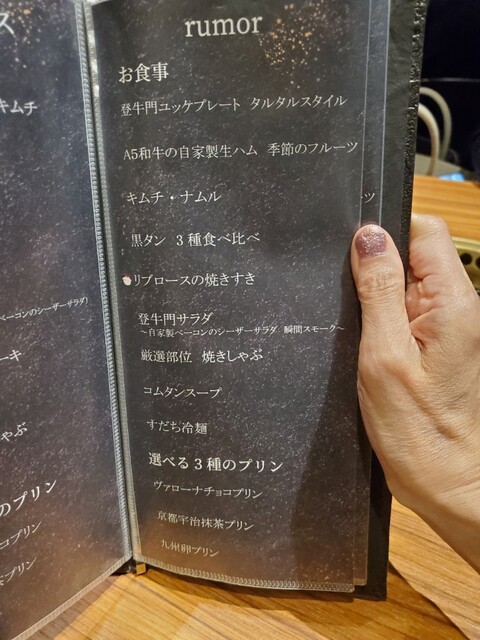 rumor
お食事
登牛門ユッケプレート タルタルスタイル
A5和牛の自家製生ハム 季節のフルーツ
キムチ・ナムル
黒タン 3種食べ比べ
リブロースの焼きすき
登牛門サラダ
~自家製ベーコンのシーザーサラダ 瞬間スモーク~
厳選部位 焼きしゃぶ
コムタンスープ
すだち冷麺
選べる3種のプリン
ヴァローナチョコプリン
京都宇治抹茶プリン
九州卵プリン
ス
キムチ
ベーコンのシーザーサラダ)
ーキ
ゃぶ
のプリン
コプリン
茶プリン
ーツ